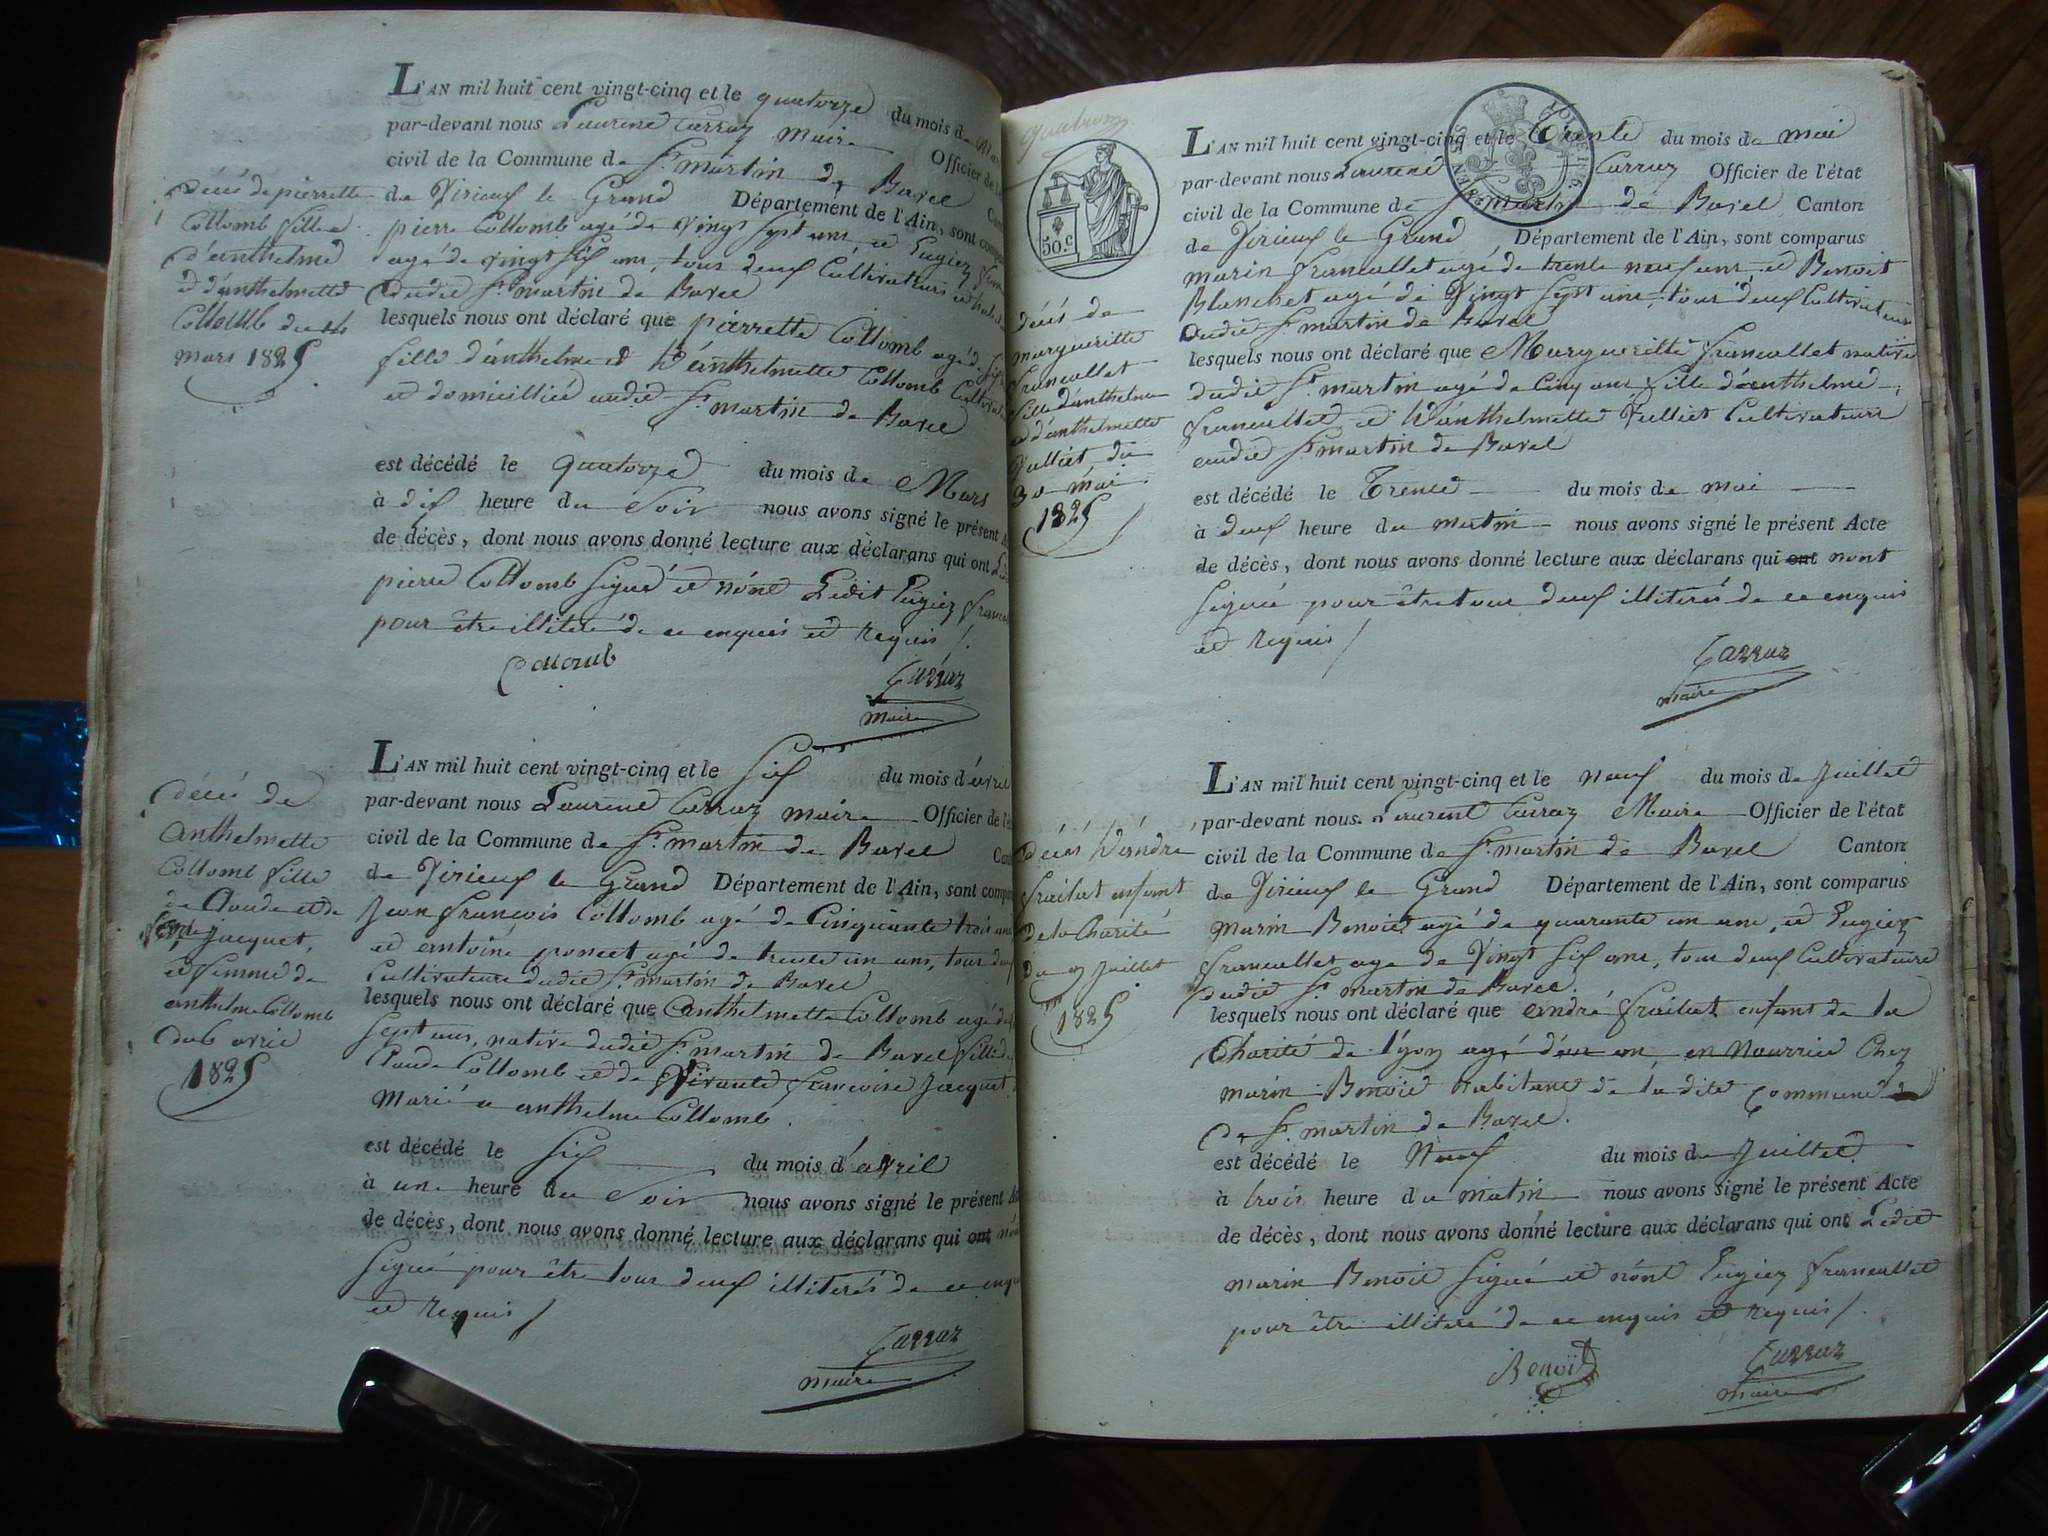 L'AN mil huit cent vingt-cinq et le quatorze du mois de
par-devant nous Laurent Carraz Maire Officier de l'é
civil de la Commune de St. martin de Bavel Can
de Virieux le Grand Département de l'Ain, sont compa
pierre Collomb agé de vingt sept ans, et Eugiez
agé de vingt six ans, tous deux Cultivateurs
dudit St. martin de Bavel
lesquels nous ont déclaré que pierrette Collomb agé de six
fille d'anthelme et D'anthelmette Collomb Cultivat
et domicillié audit St. martin de Bavel
est décédé le quatorze du mois de Mars
à dix heure du Soir nous avons signé le présent A
de décès, dont nous avons donné lecture aux déclarans qui ont
pierre Collomb signé et nont Ledit Eugiez
pour être illiteré de ce enquis et requis /.
Collomb
Carraz
maire
décés de pierrette
Collomb fille
d'anthelme
et d'anthelmette
Collomb du 14
mars 1825
L'AN mil huit cent vingt-cinq et le six du mois d'avril
par-devant nous Laurent Carraz maire Officier de l'é
civil de la Commune de St. martin de Bavel Can
de Virieux le Grand Département de l'Ain, sont compa
Jean François Collomb agé de Cinquante trois ans
et antoine poncet agé de trente un ans, tous deux
Cultivateurs dudit St. martin de Bavel
lesquels nous ont déclaré que anthelmette Collomb agé de
sept ans, native dudit St. martin de Bavel fille de
Claude Collomb et de françoise Jacquet,
Marié a anthelme Collomb.
est décédé le six du mois d'avril
à une heure du Soir nous avons signé le présent Ac
de décès, dont nous avons donné lecture aux déclarans qui ont
signé pour être tous deux illiterés de ce enqu
et requis /
Carraz
maire
décés de
anthelmette
Collomb fille
de Claude et de
Jacquet,
et femme de
anthelme Collomb
du 6 avril
1825
50. c
L'AN mil huit cent vingt-cinq et le trente du mois de mai
par-devant nous Laurent Carraz Officier de l'état
civil de la Commune de St. martin de Bavel Canton
de Virieux le Grand Département de l'Ain, sont comparus
marin francallet agé de trente neuf ans et Benoit
Blanchet agé de Vingt sept ans, tous deux Cultivateurs
dudit St. martin de Bavel
lesquels nous ont déclaré que Margueritte francallet native
dudit St. martin agé de Cinq ans fille d'anthelme
francallet et D'anthelmette Vulliet Cultivateurs
audit St. martin de Bavel
est décédé le Trente du mois de mai
à deux heure du martin nous avons signé le présent Acte
de décès, dont nous avons donné lecture aux déclarans qui ont nont
signé pour être tous deux illiterés de ce enquis
et requis /
Carraz
maire
décés de
margueritte
francallet
fille d'anthelme
et d'anthelmette
Vulliet du
30 mai
1825
L'AN mil huit cent vingt-cinq et le neuf du mois de Juillet
par-devant nous Laurent Carraz Maire Officier de l'état
civil de la Commune de St. martin de Bavel Canton
de Virieux le Grand Département de l'Ain, sont comparus
marin Benoit agé de quarante un ans, et Eugiez
francallet age de Vingt six ans, tous deux Cultivateurs
dudit St. martin de Bavel.
lesquels nous ont déclaré que andré frailat enfant de la
Charité de lyon agé d'un an en Nourrice Chez
marin Benoit habitant de la dite Commune
de St. martin de Bavel.
est décédé le Neuf du mois de Juillet
à trois heure du matin nous avons signé le présent Acte
de décès, dont nous avons donné lecture aux déclarans qui ont Ledit
marin Benoit signé et nont Eugiez francallet
pour être illiteré de ce enquis et requis /.
Benoit
Carraz
maire
décés D'andré
frailat enfant
de la Charité
du 9 Juillet
1825